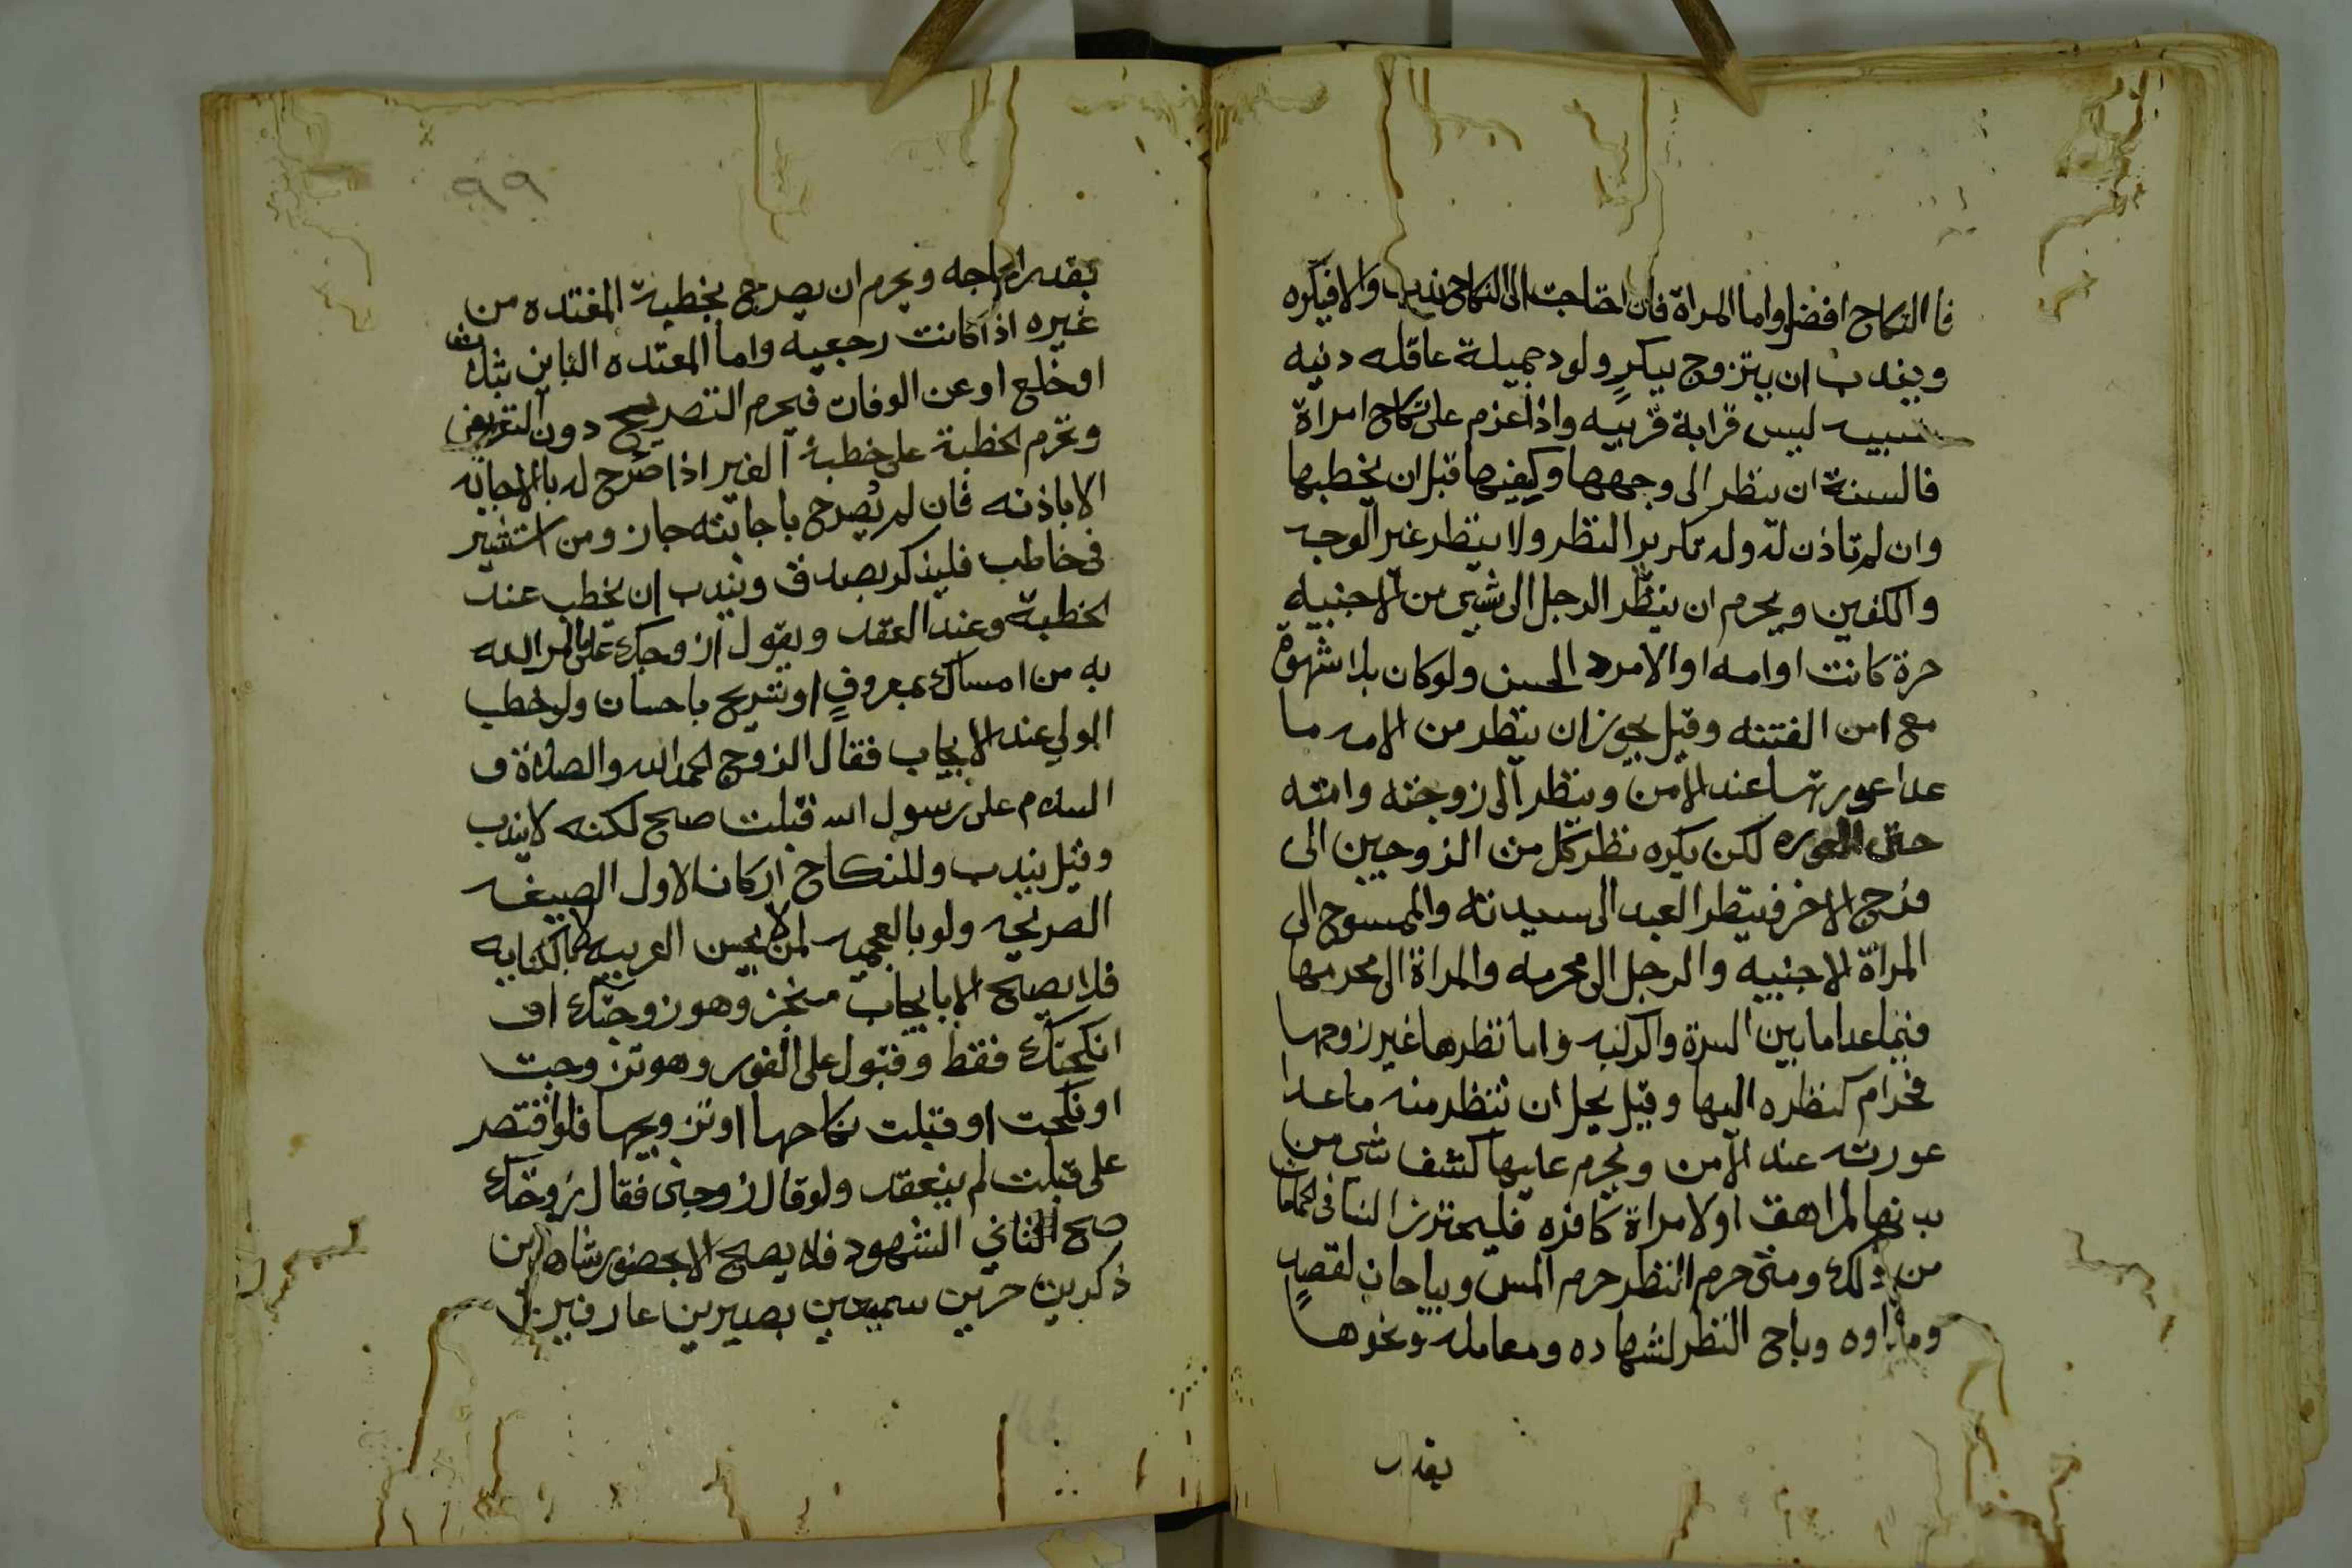 فا النكاح افضل واما المراة فان احتاجت الى النكاح ندب والا فيكره
ويندب ان يتزوج ببكرٍ ولود جميلة عاقله دنيه
نسيبه ليس قرابة قريبه واذا عزم على نكاح امراة
فالسنة ان ينظر الى وجهها وكفيها قبل ان يخطبها
وان لم تاذن له وله تكرير النظر ولا ينظر غير الوجه
والكفين ويحرم ان ينظر الرجل الى شيى من الاجنبيه
حرة كانت او امه او الامرد الحسن ولو كان بلا شهوة
مع امن الفتنه وقيل يجوز ان ينظر من الامه ما
عدا عورتها عند الامن وينظر الى زوجته وامته
حتى العوره لكن يكره نظر كل من الزوجين الى
فرج الاخر فينظر العبد الى سيدته والممسوح الى
المراة الاجنبيه والرجل الى محرمه والمراة الى محرمها
فيما عدا ما بين السرة والركبه واما نظرها غير زوجها
فحرام كنظره اليها وقيل يحل ان تنظر منه ما عدا
عورته عند الامن ويحرم عليها كشف شى من
بدنها لمراهق او لامراة كافره فليحترز النسا فى الحمامات
من ذلك ومتى حرم النظر حرم المس ويباحان لفصدٍ
ومداوه وباح النظر لشهاده ومعامله ونحوها
بقدر
٩٩
بقدر الحاجه ويحرم ان يصرح بخطبة المعتده من
غيره اذا كانت رجعيه واما المعتده البائن بثلث
او خلع او عن الوفات فيحرم التصريح دون التعريض
وتحرم الخطبة على خطبة الغير اذا صرح له بالاجابه
الا باذنه فان لم يصرح باجابته جاز ومن استشير
فى خاطب فليذكر بصدق ويندب ان يخطب عند
الخطبة وعند العقد ويقول ازوجك على ما امر الله
به من امساك بمعروفٍ او تسريح باحسان ولو خطب
الولي عند الايجاب فقال الزوج الحمد الله والصلاة و
السلام على رسول الله قبلت صح لكنه لا يندب
وقيل يندب وللنكاح اركان الاول الصيغه
الصريحه ولو بالعجميه لمن لا يحسن العربيه لا بالكنايه
فلا يصح الا بايجاب منجز وهو زوجتك او
انكحتك فقط وقبول على الفور وهو تزوجت
او نكحت او قبلت نكاحها او تزويجها فلو اقتصر
على قبلت لم ينعقد ولو قال زوجنى فقال زوجتك
صح الثاني الشهود فلا يصح الا بحضور شاهدين
ذكرين حرين سميعين بصيرين عارفين